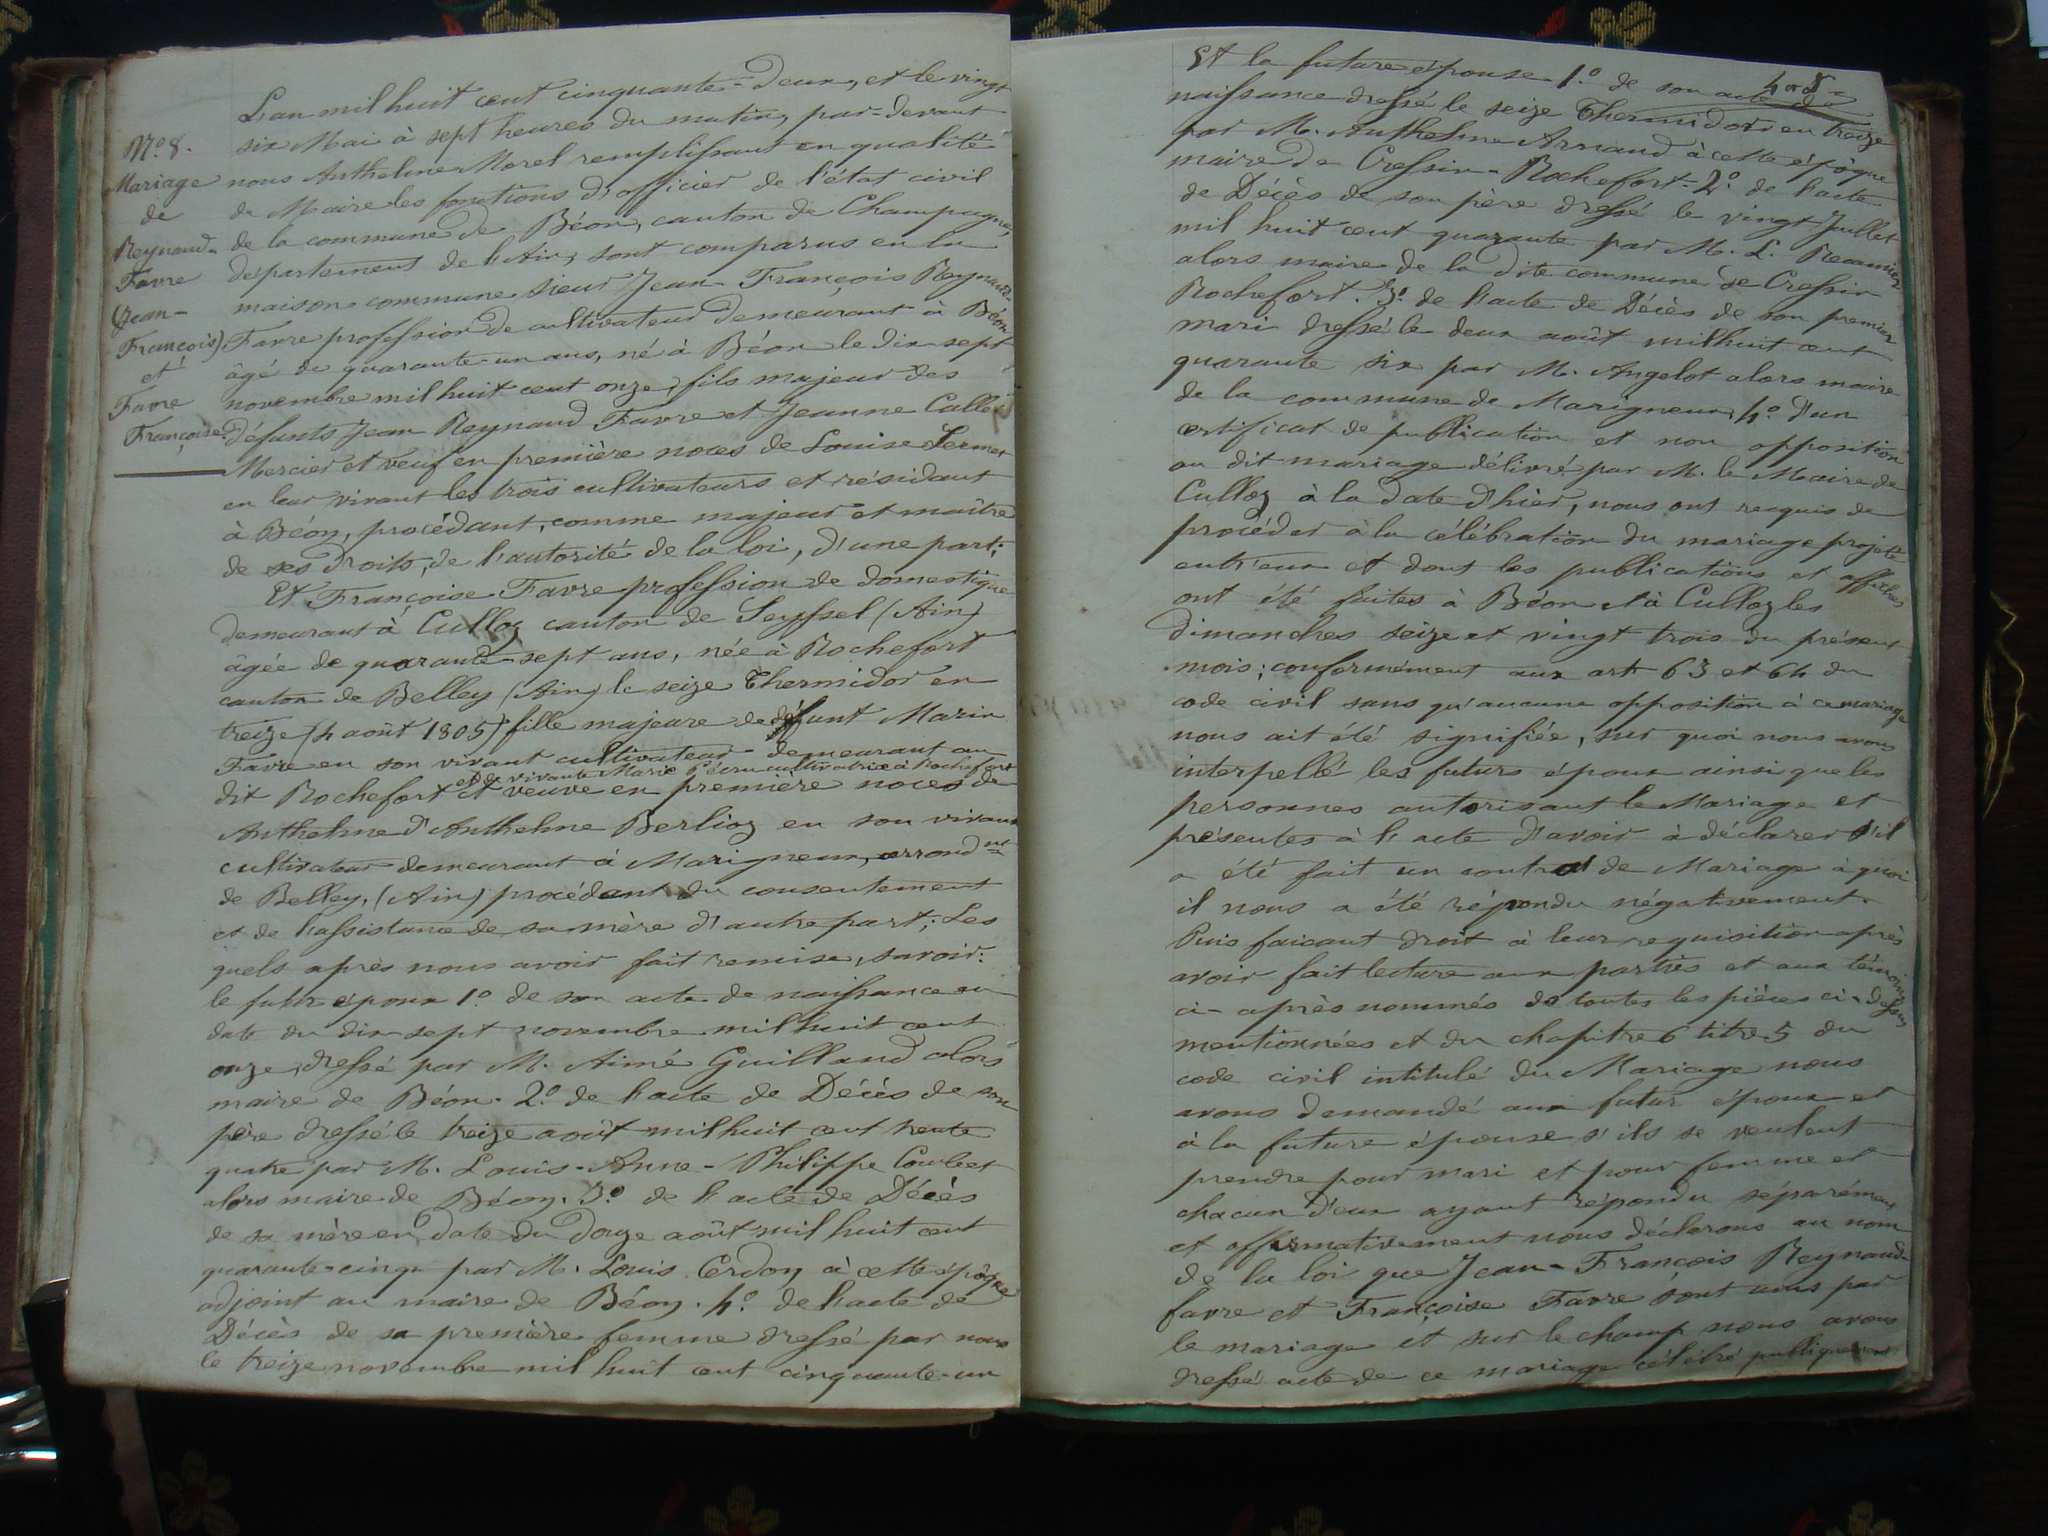 N.o 8.
Mariage
de
Reynaud-
Favre
(Jean-
François)
et
Favre
Françoise.
L'an mil huit cent cinquante-deux, et le vingt
six Mai à sept heures du matin, par-devant
nous Anthelme Morel remplissant en qualité
de Maire les fonctions d'officier de l'état civil
de la commune de Béon, canton de Champagne,
département de l'Ain, sont comparus en la
maison commune sieur Jean-François Reynaud-
Favre profession de cultivateur demeurant à Béon
âgé de quarante-un ans, né à Béon le dix-sept
novembre mil huit cent onze, fils majeur des
défunts Jean Reynaud Favre et Jeanne
Mercier et veuf en première noces de Louise
en leur vivant les trois cultivateurs et résidant
à Béon, procédant, comme majeur et maître
de ses droits, de l'autorité de la loi, d'une part;
Et Françoise Favre profession de domestique
demeurant à Culloz canton de Seyssel (Ain)
âgée de quarante-sept ans, née à Rochefort
canton de Belley (Ain) le seize Thermidor en
treize (4 août 1805) fille majeure de défunt Marin
Favre en son vivant cultivateur demeurant au
et de vivante Marie cultivatrice à Rochefort
dit Rochefort et veuve en première noces de
Anthelme d'Anthelme Berlioz en son vivant
cultivateur demeurant à Marigneux, arrond.nt
de Belley, (Ain) procédant du consentement
et de l'assistance de sa mère d'autre part; Les
quels après nous avoir fait remise, savoir:
le futur époux 1o de son acte de naissance en
date du dix-sept novembre mil huit cent
onze, dressé par M. Aimé Guilland alors
maire de Béon. 2.o de l'acte de Décès de son
père dressé le treize août mil huit cent trente
quatre par M. Louis-Anne-Philippe
alors maire de Béon. 3.o de l'acte de Décès
de sa mère en date du douze août mil huit cent
quarante-cinq par M. Louis Cerdon à cette époque
adjoint au maire de Béon. 4.o de l'acte de
Décès de sa première femme dressé par nous
le treize novembre mil huit cent cinquante-un
Et la future épouse 1.o de son acte de
naissance dressé le seize Thermidor en treize
par M. Anthelme Armand à cette époque
maire de Cressin-Rochefort. 2.o de l'acte
de Décès de son père dressé le vingt Juillet
mil huit cent quarante par M. L. Récamier
alors maire de la dite commune de Cressin
Rochefort. 3.o de l'acte de Décès de son premier
mari dressé le deux août mil huit cent
quarante six par M. Angelot alors maire
de la commune de Marigneux, 4.o d'un
certificat de publication et non opposition
au dit mariage délivré par M. le Maire de
Culloz à la date d'hier, nous ont requis de
procéder à la célébration du mariage projeté
entr'eux et dont les publications et affiches
ont été faites à Béon et à Culloz les
dimanches seize et vingt trois du présent
mois; conformément aux art. 63 et 64 du
code civil sans qu'aucune opposition à ce mariage
nous ait été signifiée, sur quoi nous avons
interpellé les futurs époux ainsi que les
personnes autorisant le Mariage et
présentes à l'acte d'avoir à déclarer s'il
a été fait un contrat de Mariage à quoi
il nous a été répondu négativement.
Puis faisant droit à leur requisition après
avoir fait lecture aux parties et aux témoins
ci-après nommés de toutes les pièces ci-dessus
mentionnées et du chapitre 6 titre 5 du
code civil intitulé du Mariage nous
avons demandé aux futur époux et
à la future épouse s'ils se veulent
prendre pour mari et pour femme et
chacun d'eux ayant répondu séparément
et affirmativement nous déclarons au nom
de la loi que Jean-François Reynaud
favre et Françoise Favre sont unis par
le mariage et sur le champ nous avons
dressé acte de ce mariage célébré publiquement